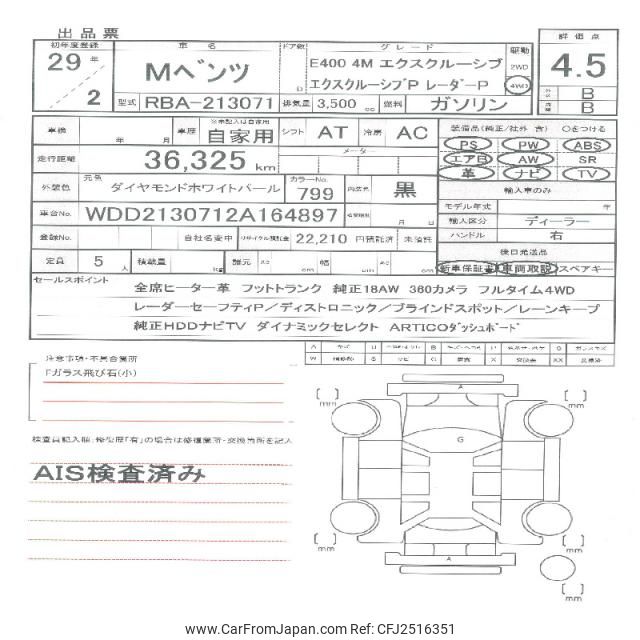 出品票
初年度登録 車名 ドア数 グレード 駆動 評価点
29年 2 Mベンツ D E400 4M エクスクルーシブ エクスクルーシブP レーダーP 2WD 4WD 4.5
型式 RBA-213071 排気量 3,500 cc 燃料 ガソリン 内装 B
B
車検 年 月 車歴 ※未記入は自家用 自家用 シフト AT 冷房 AC 装備品(純正/社外 含) ○をつける
PS PW ABS
走行距離 36,325 km メーター エアB AW SR
革 ナビ TV
外装色 元色 ダイヤモンドホワイトパール カラーNo. 799 内装色 黒 輸入車のみ
モデル年式 年
車台No. WDD2130712A164897 月 日 輸入区分 ディーラー
登録No. 自社名変中 リサイクル預託金 22,210 円預託済 未預託 ハンドル 右
定員 5 人 積載量 kg 諸元 長さ cm 幅 cm 高さ cm 後日発送品
新車保証書 車両取説 スペアキー
セールスポイント 全席ヒーター革 フットトランク 純正18AW 360カメラ フルタイム4WD
レーダーセーフティP/ディストロニック/ブラインドスポット/レーンキープ
純正HDDナビTV ダイナミックセレクト ARTICOダッシュボード
注意事項・不具合箇所
Fガラス飛び石(小)
検査員記入欄:修復歴「有」の場合は修復箇所・交換箇所を記入
AIS検査済み
A
G
A
mm
mm
mm
mm
mm
www.CarFromJapan.com Ref: CFJ2516351